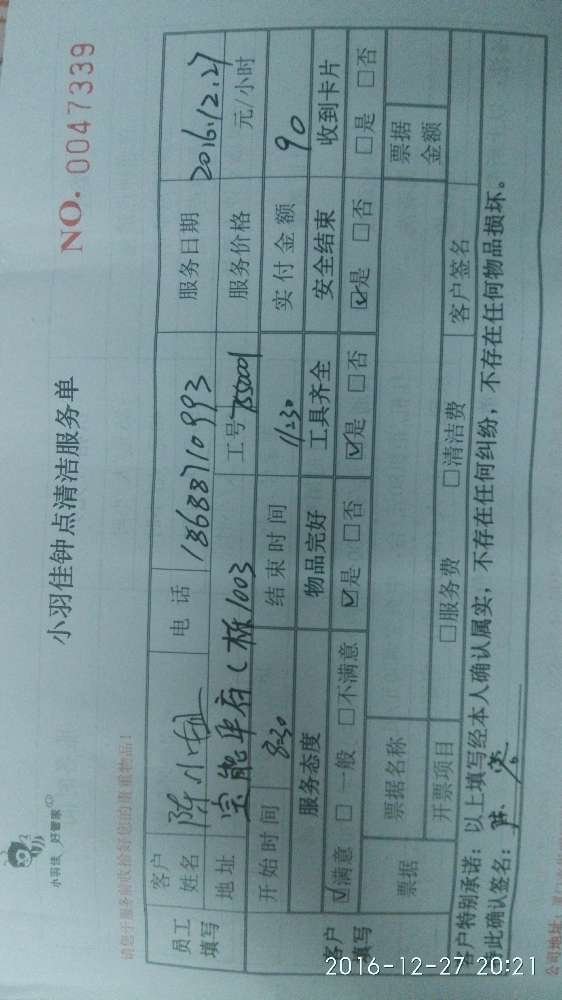 小羽佳 好管家
小羽佳钟点清洁服务单
NO. 0047339
请您于服务前收拾好您的贵重物品!
员工填写
客户姓名 陈小姐 电话 18688710993 服务日期 2016.12.27
地址 华府1栋1003 工号 服务价格 元/小时
客户填写
开始时间 8:30 结束时间 11:30 实付金额 90
服务态度 物品完好 工具齐全 安全结束 收到卡片
☑满意 □一般 □不满意 ☑是 □否 ☑是 □否 ☑是 □否 □是 □否
票据 票据名称 票据金额
开票项目 □服务费 □清洁费 客户签名
客户特别承诺:以上填写经本人确认属实,不存在任何纠纷,不存在任何物品损坏。
特此确认签名:陈
公司地址:
2016-12-27 20:21